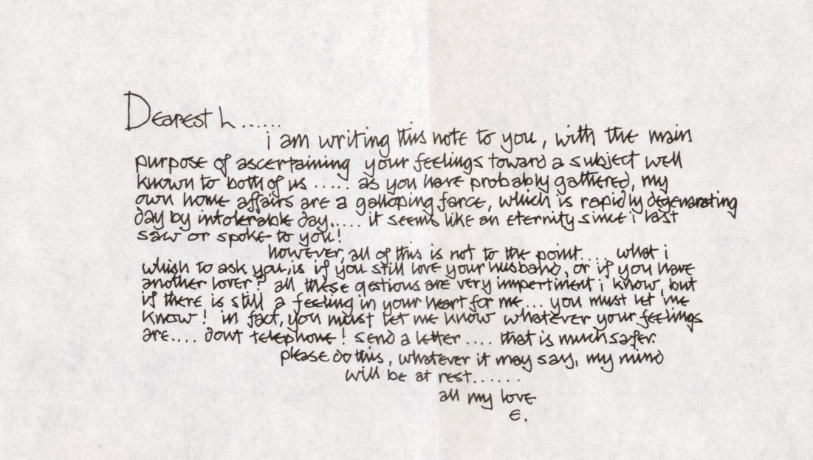 Dearest L......
i am writing this note to you, with the main
purpose of ascertaining your feelings toward a subject well
known to both of us ..... as you have probably gathered, my
own home affairs are a galloping farce, which is rapidly degenarating
day by intolerable day..... it seems like an eternity since i last
saw or spoke to you!
however, all of this is not to the point.... what i
whish to ask you, is if you still love your husband, or if you have
another lover? all these qestions are very impertinent i know, but
if there is still a feeling in your heart for me... you must let me
know! in fact, you must let me know whatever your feelings
are.... dont telephone! send a letter .... that is much safer.
please do this, whatever it may say, my mind
will be at rest......
all my love
E.